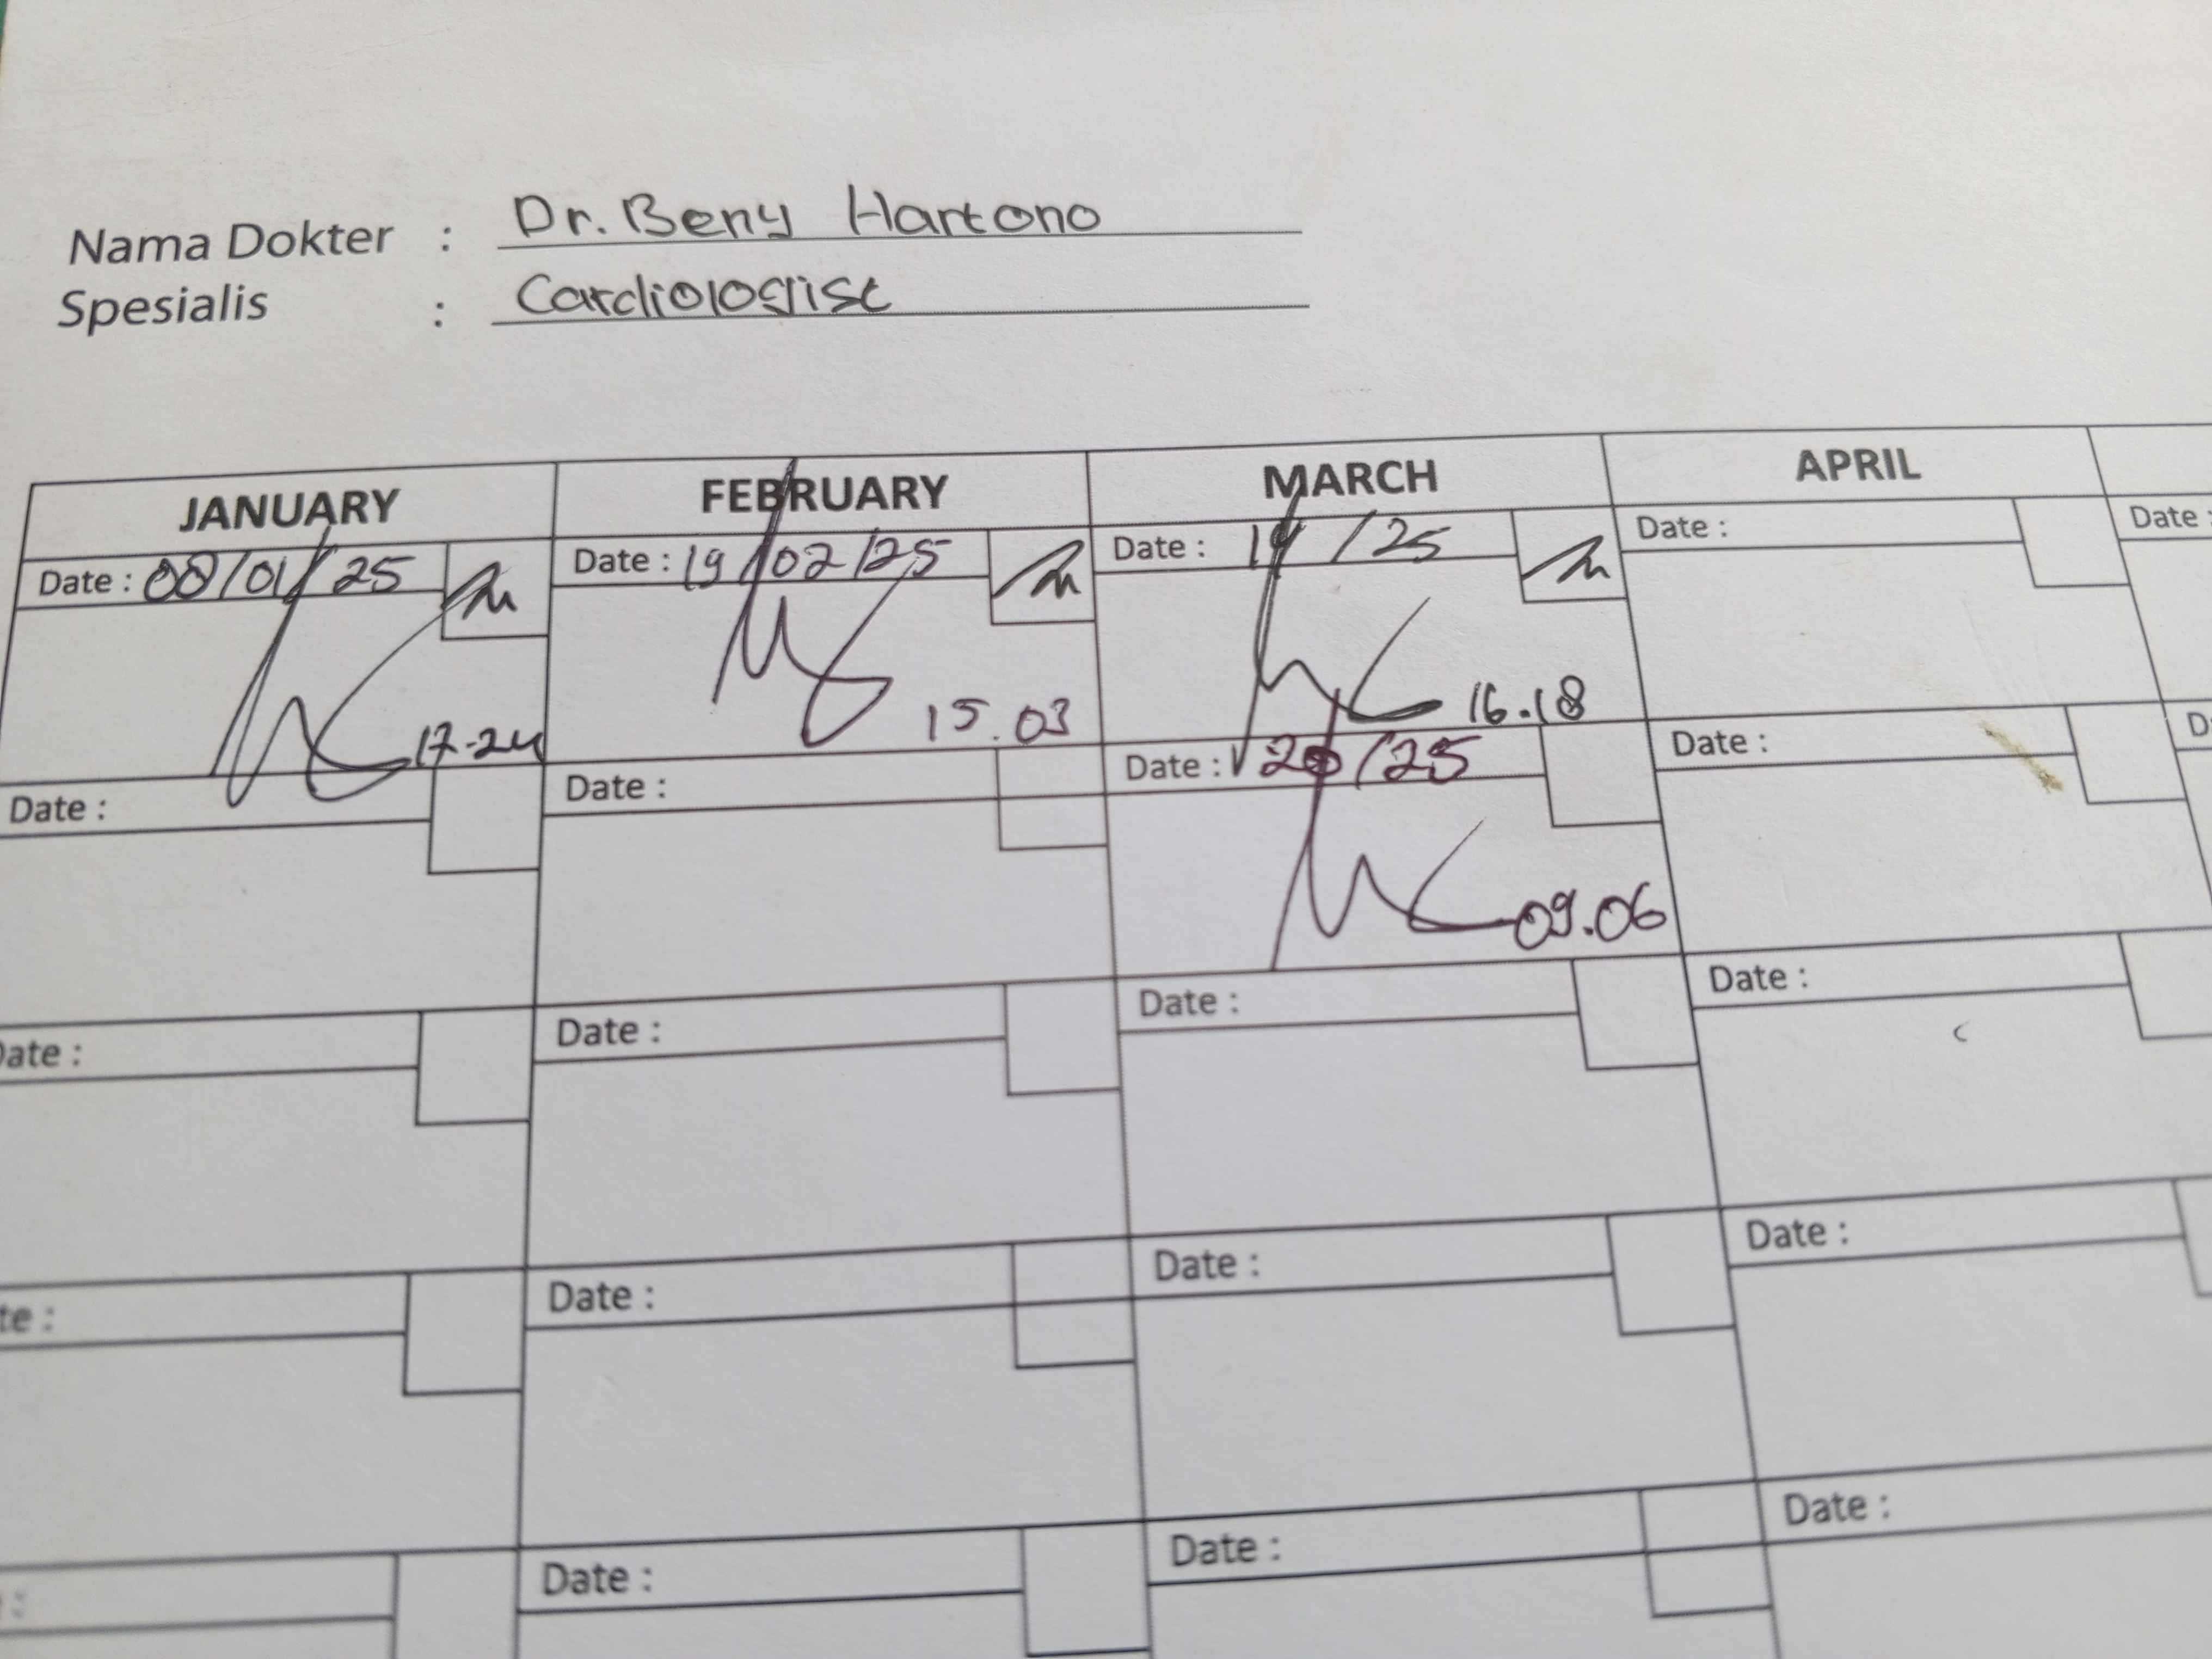 Nama Dokter : Dr. Beny Hartono
Spesialis : Cardiologist
JANUARY FEBRUARY MARCH APRIL
Date : 08/01/25 Date : 19/02/25 Date : /25 Date : Date :
17-24 15.03 16.18
Date : Date : Date : 20/25 Date :
09.06
Date : Date : Date :
Date : Date : Date :
Date : Date : Date :